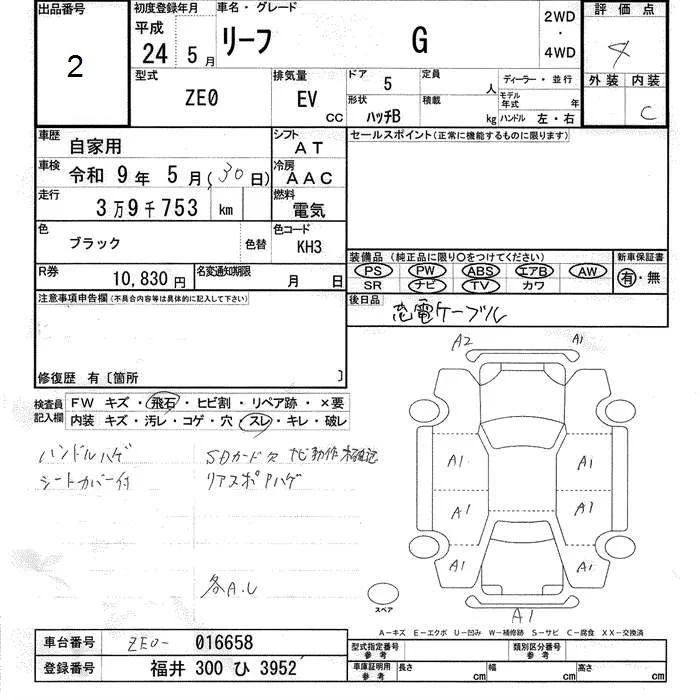 出品番号 初度登録年月 車名・グレード 2WD ・ 4WD 評価点
2 平成 24 年 5 月 リーフ G 4
外装 内装
C
型式 ZE0 排気量 EV CC ドア 5 定員 人 ディーラー・並行
形状 ハッチB 積載 kg モデル年式 年
ハンドル 左・右
車歴 自家用 シフト AT セールスポイント(正常に機能するものに限ります)
車検 令和 9 年 5 月 (30日) 冷房 AAC
走行 3万9千753 km 燃料 電気
色 ブラック 色替 色コード KH3
装備品 (純正品に限り○をつけてください) 新車保証書
PS PW ABS エアB AW 有・無
SR ナビ TV カワ
R券 10,830 円 名変通知期限 月 日
後日品 充電ケーブル
注意事項申告欄(不具合内容等は具体的に記入して下さい)
修復歴 有〔箇所 〕
検査員記入欄 FW キズ・飛石・ヒビ割・リペア跡・×要
内装 キズ・汚レ・コゲ・穴・スレ・キレ・破レ
ハンドルハゲ SDカード欠 ナビ動作未確認
シートカバー付 リアスポハゲ
各A.U
A2 A1
A1 A1
A1 A1
A1 A1
A1
スペア
A-キズ E-エクボ U-凹み W-補修跡 S-サビ C-腐食 XX-交換済
車台番号 ZE0- 016658
登録番号 福井 300 ひ 3952
型式指定番号 参考 類別区分番号 参考
車庫証明用 参考 長さ cm 幅 cm 高さ cm